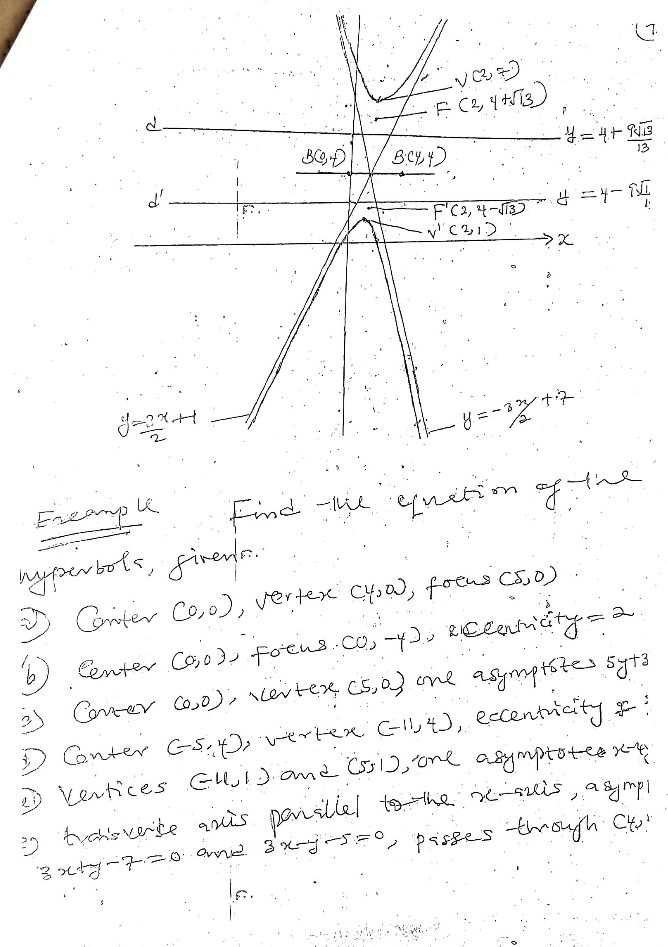 (7
V(2,7)
F(2, 4+√13)
d
y = 4 + 9√13/13
B(0,4) B(4,4)
d'
F'(2, 4-√13)
y = 4 -
V'(2,1)
x
y = 3x/2 + 1
y = -3x/2 + 7
Example Find the equation of the
hyperbola, given.
a) Center (0,0), vertex (4,0), focus (5,0)
b) Center (0,0), focus (0,-4), eccentricity = 2
c) Center (0,0), vertex (5,0) one asymptotes 5y+3
d) Center (-5,4), vertex (-11,4), eccentricity
e) Vertices (-11,1) and (5,1), one asymptotes x-4
transverse axis parallel to the x-axis, asympt
3x+y-7=0 and 3x-y-5=0, passes through (4,